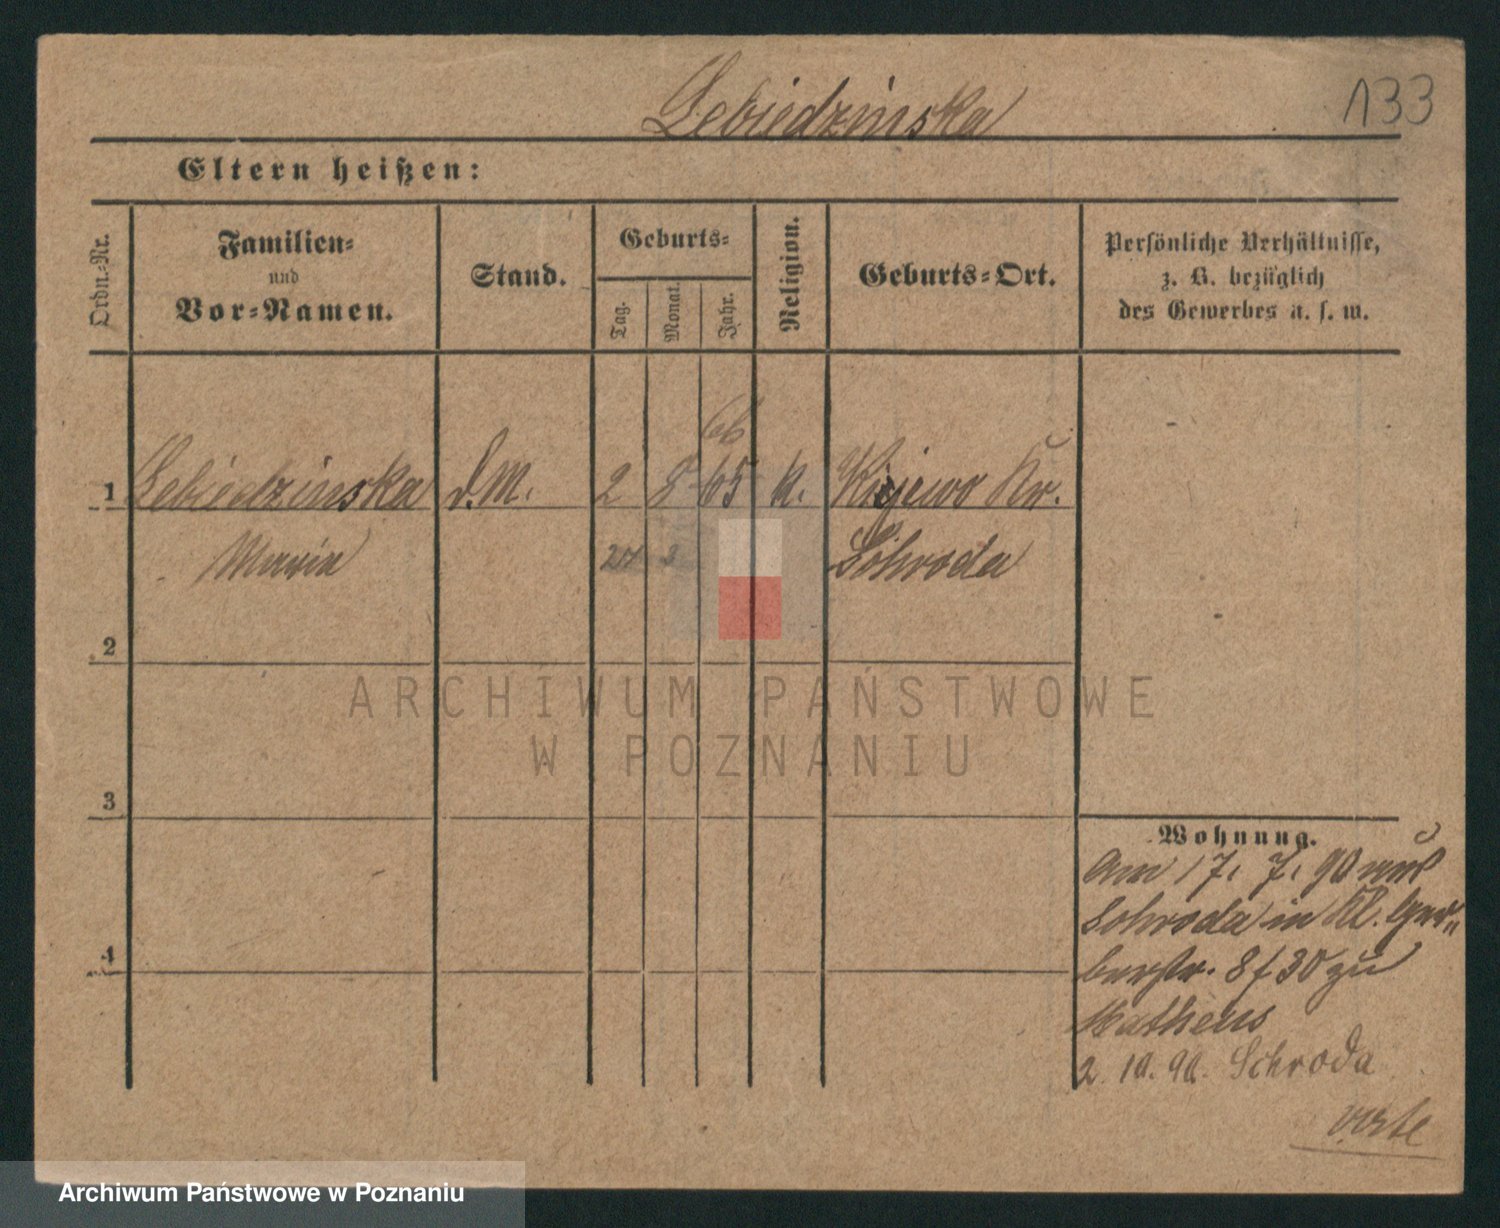 Lebiedzinska
133
Eltern heißen:
Ordn.-Nr.
Familien-
und
Vor-Namen.
Stand.
Geburts-
Tag.
Monat.
Jahr.
Religion.
Geburts-Ort.
Persönliche Verhältnisse,
z. B. bezüglich
des Gewerbes u. s. w.
66
1 Lebiedzinska d.M. 2 8 65 k. Krajewo Kr.
Maria 24 3 Schroda
2
3
4
Wohnung.
Am 17. 7. 90 aus
Schroda in Kl. Ger„
berstr. 8 f 30 zu
Matheus
2. 10. 90. Schroda
verte
ARCHIWUM PAŃSTWOWE
W POZNANIU
Archiwum Państwowe w Poznaniu